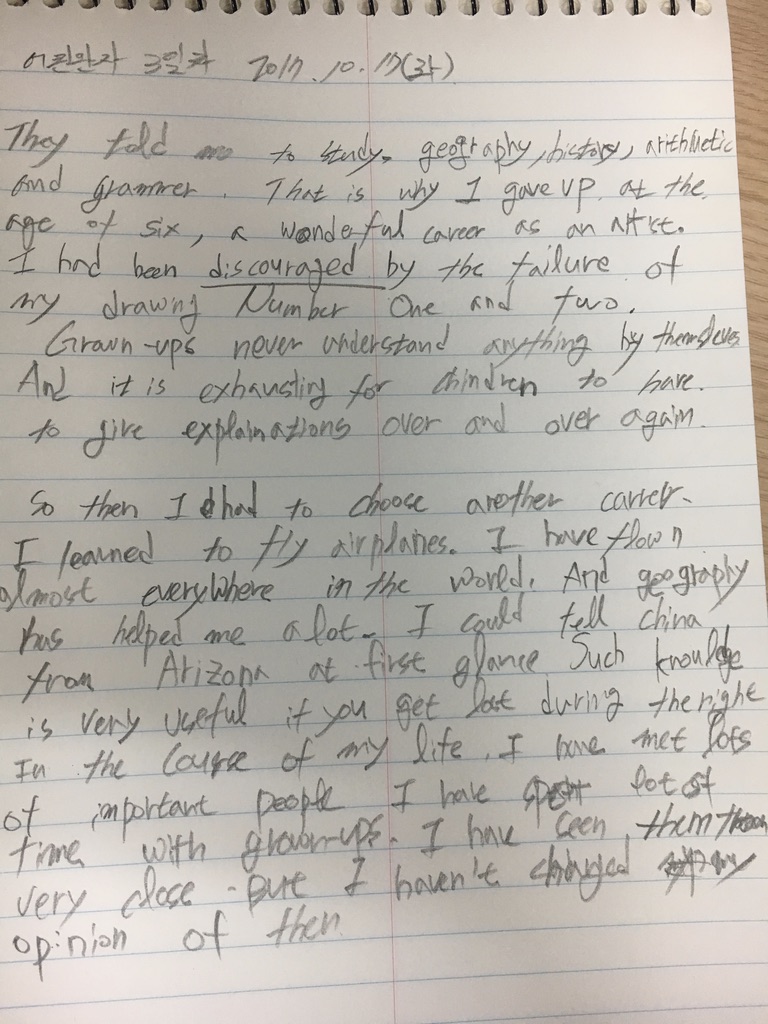 어린완자 3일차 2017.10.17(화)
They told me to study. geography, history, arithmetic
and grammer. That is why I gave up at the
age of six, a wonderful career as an Artist.
I had been discouraged by the failure of
my drawing Number One and two.
Grown-ups never understand anything by themselves
And it is exhausting for chindren to have.
to give explainations over and over again.
So then I had to choose another carrer.
I learned to fly airplanes. I have flown
almost everywhere in the world. And geography
has helped me a lot. I could tell china
from Arizona at first glance Such knoulge
is very useful if you get lost during the night
In the course of my life, I have met lots
of important people I have spent lot of
time with grown-ups. I have seen them
very close. But I haven't changed my
opinion of them